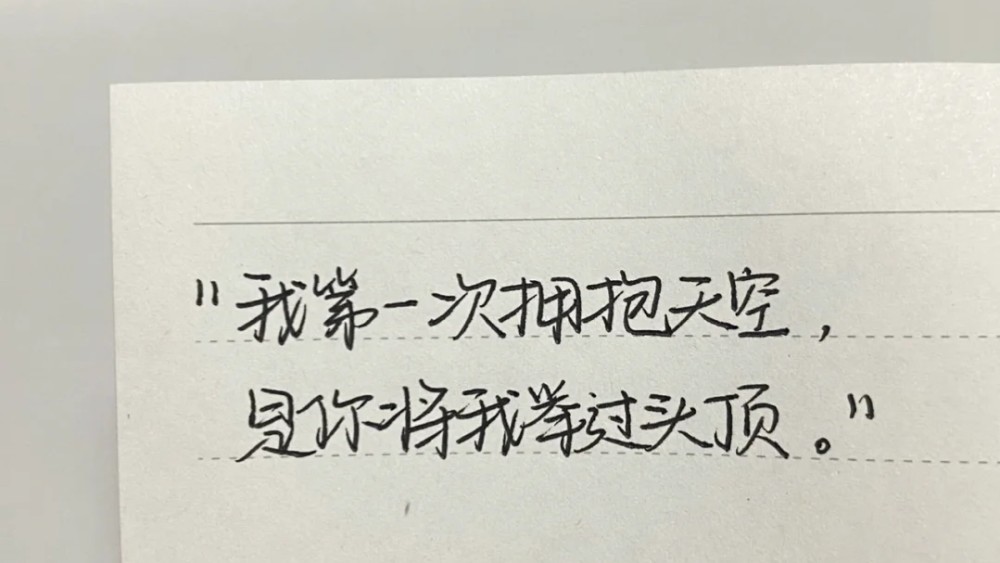 "我第一次拥抱天空，
是你将我举过头顶。"